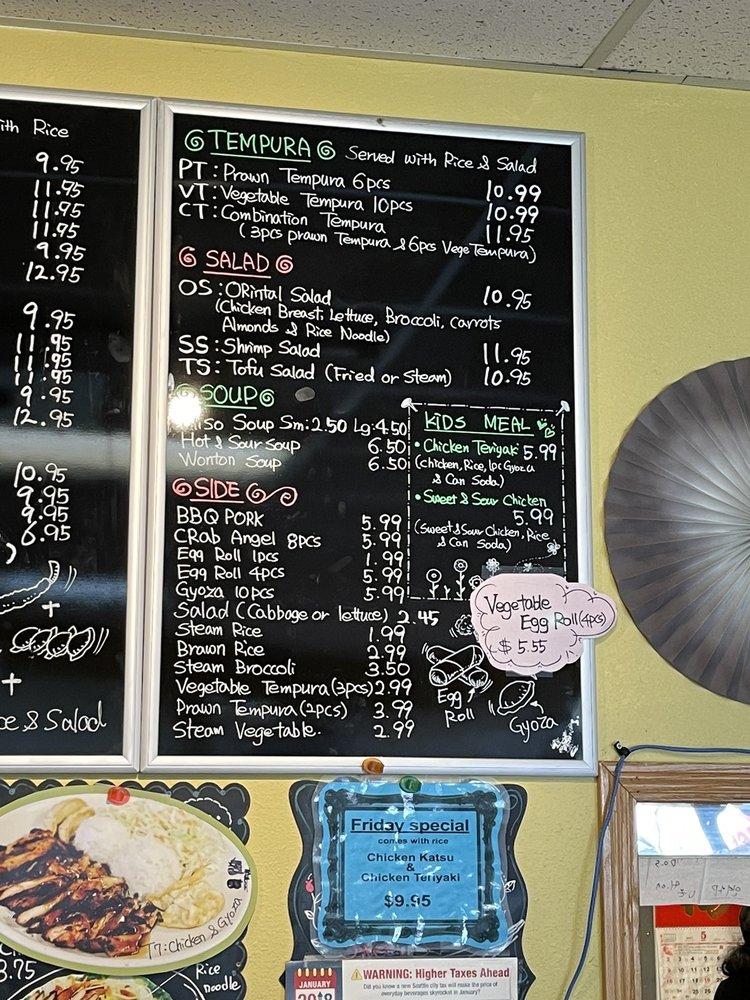 ith Rice
9.95
11.95
11.95
11.95
9.95
12.95
9.95
11.95
11.95
11.95
9.95
12.95
10.95
9.95
9.95
6.95
+
+
& Salad
TEMPURA Served with Rice & Salad
PT: Prawn Tempura 6pcs 10.99
VT: Vegetable Tempura 10pcs 10.99
CT: Combination Tempura 11.95
(3pcs prawn Tempura & 6pcs Vege Tempura)
SALAD
OS: ORintal Salad 10.95
(Chicken Breast, Lettuce, Broccoli, Carrots
Almonds & Rice Noodle)
SS: Shrimp Salad 11.95
TS: Tofu Salad (Fried or Steam) 10.95
SOUP
Miso Soup Sm: 2.50 Lg: 4.50
Hot & Sour Soup 6.50
Wonton Soup 6.50
SIDE
BBQ PORK 5.99
CRab Angel 8pcs 5.99
Egg Roll 1pcs 1.99
Egg Roll 4pcs 5.99
Gyoza 10pcs 5.99
Salad (Cabbage or lettuce) 2.45
Steam Rice 1.99
Brawn Rice 2.99
Steam Broccoli 3.50
Vegetable Tempura (3pcs) 2.99
Prawn Tempura (2pcs) 3.99
Steam Vegetable. 2.99
KIDS MEAL
• Chicken Teriyaki 5.99
(chicken, Rice, 1pc Gyoza
& Can Soda)
• Sweet & Sour Chicken
5.99
(Sweet & Sour Chicken, Rice
& Can Soda)
Vegetable
Egg Roll (4pcs)
$5.55
Egg
Roll
Gyoza
T7: Chicken & Gyoza
3.75
Rice
noodle
Friday special
comes with rice
Chicken Katsu
&
Chicken Teriyaki
$9.95
JANUARY
WARNING: Higher Taxes Ahead
Did you know a new Seattle city tax will make the price of
everyday beverages skyrocket in January?
5